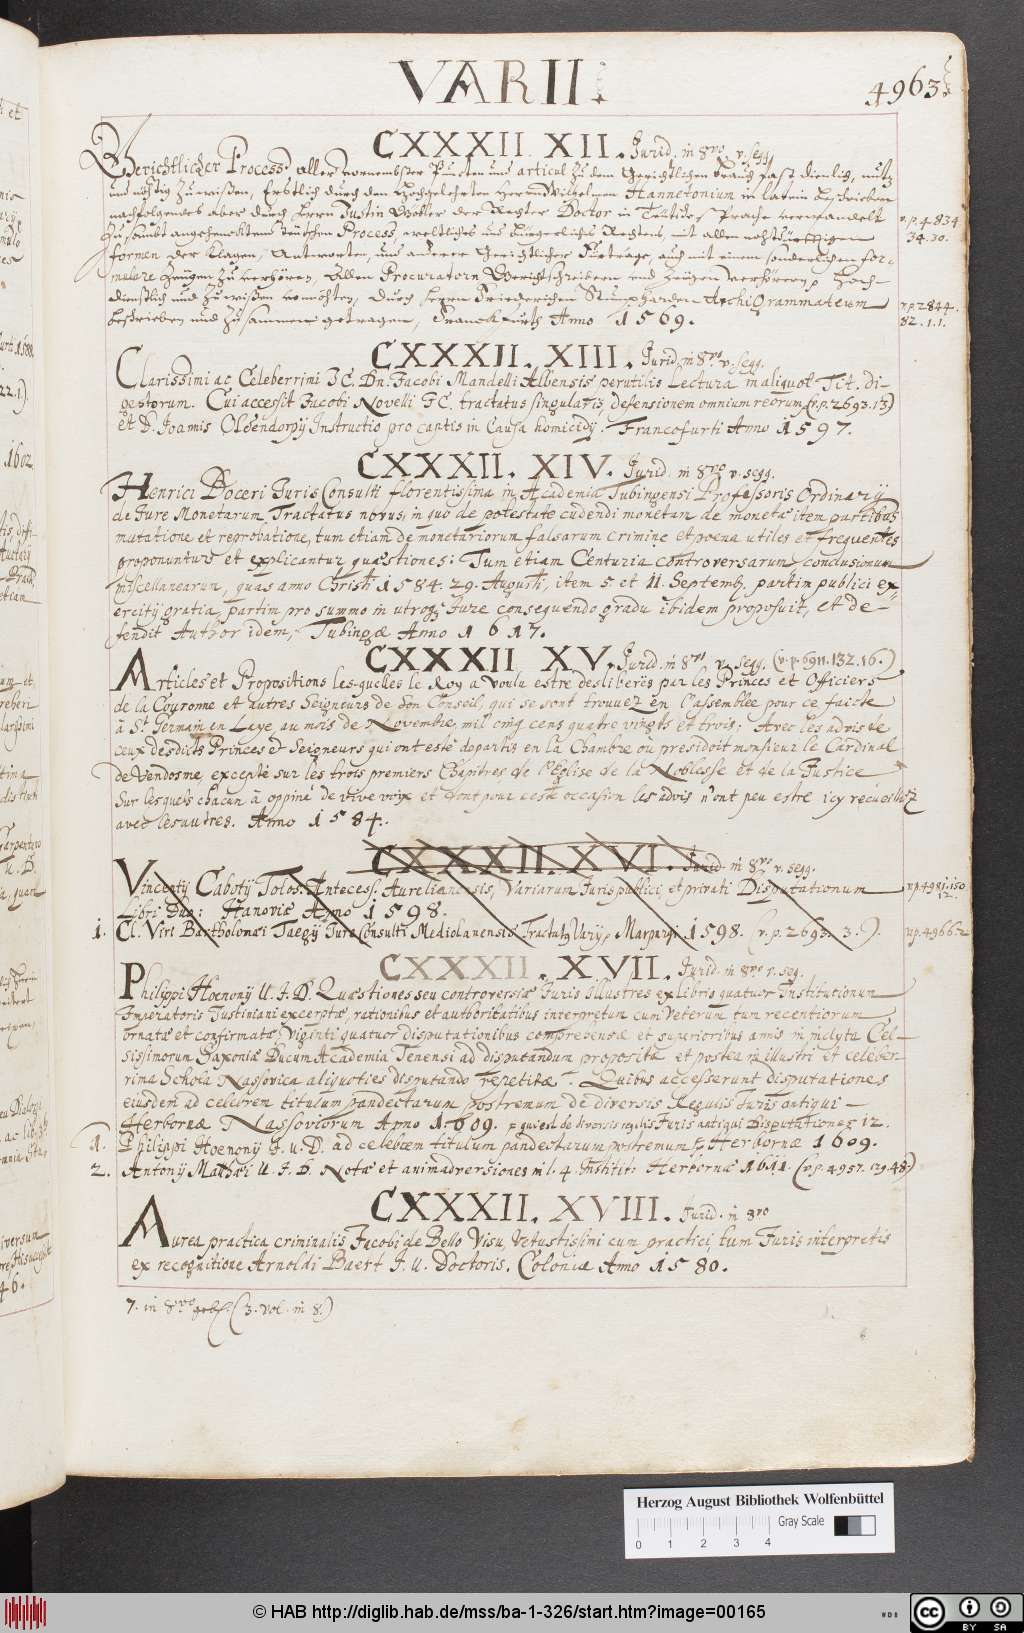 VARII
4963
CXXXII. XII. Jurid. in 8vo v. seqq.
Gerichtlicher Process aller vornembster Puncten und articul zu dem Gerichtlichen brauch fast dienlich, nutz
und nöhtig zu wissen, Erstlich durch den Hochgelehrten Herrn Hannetonium in latein beschrieben
nachfolgendes aber durch Herrn Justin Gobler der Rechter Doctor in Teutsche Sprache verwandelt
v. p. 4834
34. 30.
Process, weltliches und Bürgerliches Rechtens, mit allen
formen der Klagen, Antworten, und anderer Gerichtlicher Fürtrage, auch mit einem sonderlichen for-
mulare Zeugen zu verhören, Allen Procuratorn Gerichtschreibern und Zeugen verhörern, hoch-
dienstlich und zu wissen vonnöhten, durch Herrn Friederichen Archigrammateum
v. p. 2844.
82. 1. 1.
beschrieben und zusammen getragen, Franckfurth Anno 1569.
CXXXII. XIII. Jurid. in 8vo v. seqq.
Clarissimi ac Celeberrimi JC. Dn. Jacobi Mandelli Albensis perutilis Lectura in aliquot Tit. di-
gestorum. Cui accessit Jacobi Novelli JC. tractatus singularis, defensionem omnium reorum, (v. p. 2693. 13)
et D. Joannis Oldendorpij Instructio pro captis in Causa homicidij. Francofurti Anno 1597.
CXXXII. XIV. Jurid. in 8vo v. seqq.
Henrici Boceri Juris Consulti florentissima in Academia Tubingensi Professoris Ordinarij
de Jure Monetarum Tractatus novus, in quo de potestate cudendi monetam de monetæ item partibus
mutatione et reprobatione, tum etiam de monetariorum falsarum crimine et poena utiles et frequentes
proponuntur et explicantur quæstiones: Tum etiam Centuria controversarum conclusionum
miscellanearum, quas anno Christi 1584. 29. Augusti, item 5. et 11. Septemb. partim publici ex-
ercitij gratia, partim pro summo in utroq; Jure consequendo gradu ibidem proposuit, et de-
fendit Author idem, Tubingæ Anno 1617.
CXXXII XV. Jurid. in 8vo v. seqq. (v. p. 6911. 132. 16.)
Articles et Propositions les-quelles le Roy a voulu estre desliberes par les Princes et Officiers
de la Couronne et autres Seigneurs de son Conseil, qui se sont trouuez en l'assemblee pour ce faicte
à St. Germain en Laye au mois de Novembre, mil cinq cens quatre vingts et trois; Avec les advis de
ceux desdicts Princes et Seigneurs qui ont esté departis en la Chambre ou presidoit monsieur le Cardinal
de Vendosme, excepté sur les trois premiers Chapitres de l'Eglise de la Noblesse et de la Justice
Sur lesquels chacun à oppiné de vive voix et dont pour ceste occasion les advis n'ont peu estre icy recueillez
avec les autres. Anno 1584.
CXXXII. XVI. Jurid. in 8vo v. seqq.
Vincentij Cabotij Tolos. Antecess. Aurelianensis, Variarum Juris publici et privati Disputationum
v. p. 4981. 150.
12.
Libri Duo: Hanoviæ Anno 1598.
1. Cl. Viri Bartholomæi Taegij Jure Consulti Mediolanensis Tractatus Varij, Marpurgi 1598. (v. p. 2693. 3.)
v. p. 4966.
CXXXII. XVII. Jurid. in 8vo v. seq.
Philippi Hoenonij U. J. D. Quæstiones seu controversiæ Juris Illustres ex libris quatuor Institutionum
Imperatoris Justiniani excerptæ, rationibus et authoritatibus interpretum cum Veterum tum recentiorum
ornatæ et confirmatæ, Viginti quatuor disputationibus comprehensæ et superioribus annis in inclyta Cel-
sissimorum Saxoniæ Ducum Academia Jenensi ad disputandum propositæ et postea in illustri et celeber
rima Schola Nassovica aliquoties disputando repetitæ. Quibus accesserunt disputationes
eiusdem ad celebrem titulum pandectarum postremum de diversis Regulis Juris antiqui –
Herbornæ Nassoviorum Anno 1609.
de diversis regulis Juris antiqui Disputationes 12.
1. Philippi Hoenonij J. U. D. ad celebrem titulum pandectarum postremum Herbornæ 1609.
2. Antonij Matthæi U. J. D. Notæ et animadversiones in l. 4. Institit: Herbornæ 1611. (v. p. 4957. 129. 48)
CXXXII. XVIII. Jurid. in 8vo
Aurea practica criminalis Jacobi de Bello Visu, Vetustissimi cum practici, tum Juris interpretis
ex recognitione Arnoldi Baert J. U. Doctoris. Coloniæ Anno 1580.
7. in 8vo (3. vol. in 8.)
Herzog August Bibliothek Wolfenbüttel
Gray Scale
0 1 2 3 4
© HAB http://diglib.hab.de/mss/ba-1-326/start.htm?image=00165
WDB
cc BY SA